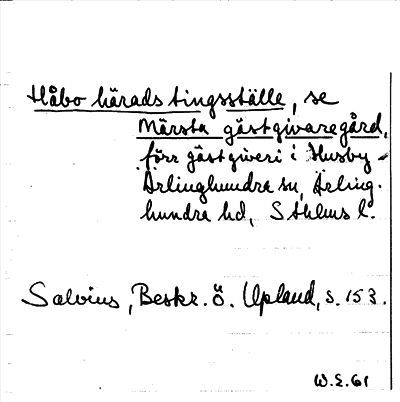 Håbo härads tingsställe, se
Märsta gästgivaregård,
förr gästgiveri i Husby-
Ärlinghundra sn, Ärling-
hundra hd, Sthlms l.
Salvius, Beskr. ö. Upland, s. 153.
W.E. 61